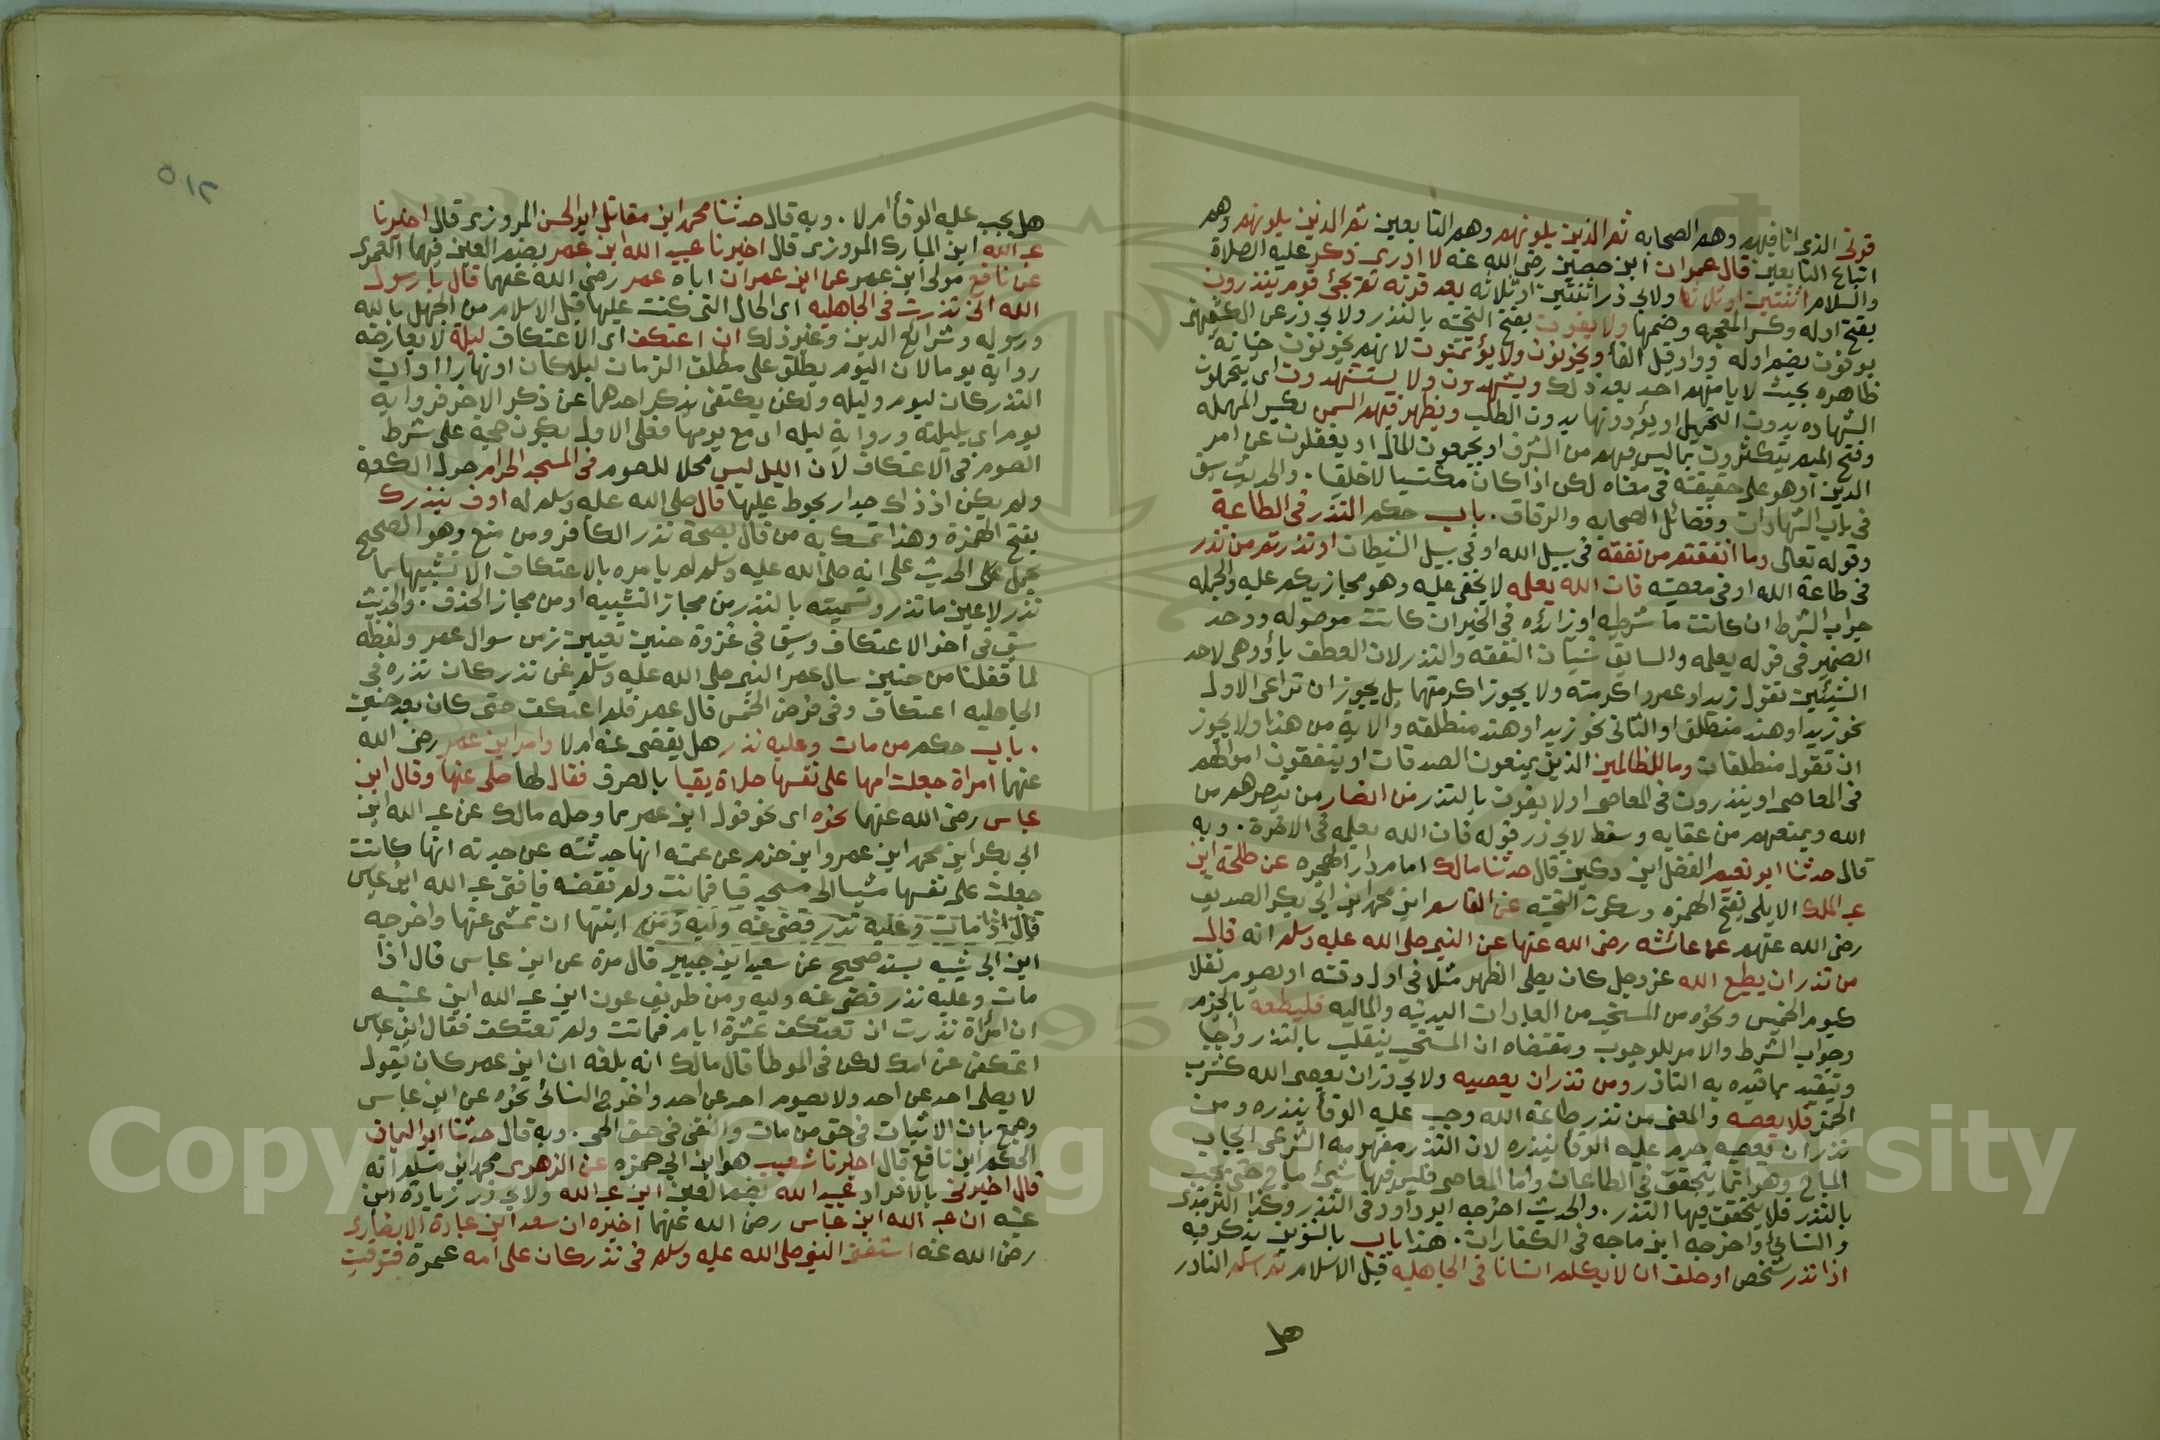 قرني الذي انا فيهم وهم الصحابه ثم الذين يلونهم وهم التابعين ثم الذين يلونهم وهم
اتباع التابعين قال عمران ابن حصين رضي الله عنه لا ادري ذكر عليه الصلاة
والسلام اثنتين او ثلاثا ولابي ذر اثنتين او ثلاثه بعد قرنه ثم يجئ قوم ينذرون
بفتح اوله وكسر المعجمه وضمها ولا يفون بفتح التحتيه بالنذر ولابي ذر عن الكشميهني
يوفون بضم اوله وواو قبل الفأ ويخونون ولا يؤتمنون لانهم يخونون خيانة
ظاهره بحيث لا يامنهم احد بعد ذلك ويشهدون ولا يستشهدون اي يتحملون
الشهاده بدون التحميل او يؤدونها بدون الطلب ويظهر فيهم السمن بكسر المهمله
وفتح الميم يتكثرون بما ليس فيهم من الشرف او يجمعون المال او يغفلون عن امر
الدين او هو على حقيقته في معناه لكن اذا كان مكتسبا لا خلقيا . والحديث سبق
في باب الشهادات وفضائل الصحابه والرقاق . باب حكم النذر في الطاعة
وقوله تعالى وما انفقتم من نفقه في سبيل الله او في سبيل الشيطان او نذرتم من نذر
في طاعة الله او في معصيته فان الله يعلمه لا يخفى عليه وهو مجازيكم عليه والجمله
جواب الشرط ان كانت ما شرطيه او زائده في الخبر ان كانت موصوله ووحد
الضمير في قوله يعلمه والسابق شيئان النفقه والنذر لان العطف بأو وهي لاحد
الشيئين تقول زيد او عمرو اكرمته ولا يجوز اكرمتهما بل يجوز ان تراعي الاول
نحو زيد او هند منطلق او الثاني نحو زيد او هند منطلقه والاية من هذا ولا يجوز
ان تقول منطلقان وما للظالمين الذين يمنعون الصدقات او ينفقون اموالهم
في المعاصي او ينذرون في المعاصي او لا يفون بالنذر من انصار من ينصرهم من
الله ويمنعهم من عقابه وسقط لابي ذر قوله فان الله يعلمه في الاخرة . وبه
قال حدثنا ابو نعيم الفضل ابن دكين قال حدثنا مالك امام دار الهجره عن طلحة ابن
عبد الملك الايلي بفتح الهمزه وسكون التحتيه عن القاسم ابن محمد ابن ابي بكر الصديق
رضي الله عنهم عن عائشه رضي الله عنها عن النبي صلى الله عليه وسلم انه قال
من نذر ان يطيع الله عز وجل كان يصلي الظهر مثلا في اول وقته او يصوم نفلا
كيوم الخميس ونحوه من المستحب من العبادات البدنيه والماليه فليطعه بالجزم
وجواب الشرط والامر للوجوب ومقتضاه ان المستحب ينقلب بالنذر واجبا
ويتقيد بما قيده به الناذر ومن نذر ان يعصيه ولابي ذر ان يعصي الله كشرب
الخمر فلا يعصه والمعنى من نذر طاعة الله وجب عليه الوفأ بنذره ومن
نذر ان يعصيه حرم عليه الوفأ بنذره لان النذر مفهومه الشرعي ايجاب
المباح وهو انما يتحقق في الطاعات واما المعاصي فليس فيها شئ مباح حتى يجب
بالنذر فلا يتحقق فيها النذر . والحديث اخرجه ابو داود في النذر وكذا الترمذي
والنسائي واخرجه ابن ماجه في الكفارات . هذا باب بالتنوين يذكر فيه
اذا نذر شخص او حلف ان لا يكلم انسانا في الجاهليه قبل الاسلام ثم اسلم الناذر
هل
٥١٢
هل يجب عليه الوفأ ام لا . وبه قال حدثنا محمد ابن مقاتل ابو الحسن المروزي قال اخبرنا
عبد الله ابن المبارك المروزي قال اخبرنا عبيد الله ابن عمر بضم العين فيهما العمري
عن نافع مولى ابن عمر عن ابن عمر ان اباه عمر رضي الله عنهما قال يا رسول
الله اني نذرت في الجاهليه اي الحال التي كنت عليها قبل الاسلام من الجهل بالله
ورسوله وشرائع الدين وغير ذلك ان اعتكف اي الاعتكاف ليلة لا يعارضه
رواية يوما لان اليوم يطلق على مطلق الزمان ليلا كان او نهارا او ان
النذر كان ليوم وليله ولكن يكتفى بذكر احدهما عن ذكر الاخر فرواية
يوم اي بليلته ورواية ليله اي مع يومها فعلى الاول يكون حجة على شرط
الصوم في الاعتكاف لان الليل ليس محلا للصوم في المسجد الحرام حول الكعبة
ولم يكن اذ ذاك جدار يحوط عليها قال صلى الله عليه وسلم له اوف بنذرك
بفتح الهمزة وهذا تمسك به من قال بصحة نذر الكافر ومن منع وهو الصحيح
يحمل على الحديث على انه صلى الله عليه وسلم لم يامره بالاعتكاف الا تشبيها بما
نذر لا عين ما نذر وتسميته بالنذر من مجاز التشبيه او من مجاز الحذف . والحديث
سبق في اخر الاعتكاف وسبق في غزوة حنين تعيين زمن سوال عمر ولفظه
لما قفلنا من حنين سال عمر النبي صلى الله عليه وسلم عن نذر كان نذره في
الجاهليه اعتكاف وفي فرض الخمس قال عمر فلم اعتكف حتى كان بعد حنين
. باب حكم من مات وعليه نذر هل يقضى عنه ام لا وامر ابن عمر رضي الله
عنهما امراة جعلت امها على نفسها صلاة بقبا بالصرف فقال لها صلي عنها وقال ابن
عباس رضي الله عنهما نحوه اي نحو قول ابن عمر مما وصله مالك عن عبد الله ابن
ابي بكر ابن محمد ابن عمرو ابن حزم عن عمته انها حدثته عن جدته انها كانت
جعلت على نفسها مشيا الى مسجد قبا فماتت ولم تقضه فافتى عبد الله ابن عباس
قال اذا مات وعليه نذر قضى عنه وليه ومنه ابنتها ان تمشي عنها واخرجه
ابن ابي شيبه بسند صحيح عن سعيد ابن جبير قال مرة عن ابن عباس قال اذا
مات وعليه نذر قضى عنه وليه ومن طريق عون ابن عبد الله ابن عتبه
ان امرأة نذرت ان تعتكف عشرة ايام فماتت ولم تعتكف فقال ابن عباس
اعتكف عن امك لكن في الموطا قال مالك انه بلغه ان ابن عمر كان يقول
لا يصلي احد عن احد ولا يصوم احد عن احد واخرج النسائي نحوه عن ابن عباس
وجمع بان الاثبات في حق من مات والنفي في حق الحي . وبه قال حدثنا ابو اليمان
الحكم ابن نافع قال اخبرنا شعيب هو ابن ابي حمزه عن الزهري محمد ابن مسلم انه
قال اخبرني بالافراد عبيد الله بضم العين ابن عبد الله ولابي ذر زيادة ابن
عتبه ان عبد الله ابن عباس رضي الله عنهما اخبره ان سعد ابن عبادة الانصاري
رضي الله عنه استفتى النبي صلى الله عليه وسلم في نذر كان على امه عمرة فتوفيت
Copyright © King Saud University
1957